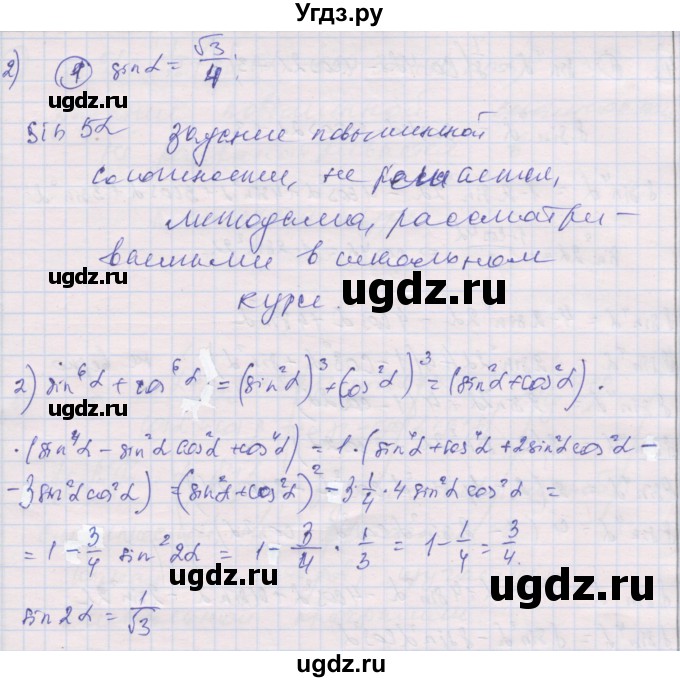 Угдз.ру
2) 1) sin α = √3/4;
ugdz.ru ugdz.ru
sin 5α задание повышенной
сложности, не решается,
ugdz.ru
методами, рассматри-
ваемыми в школьном
курсе.
ugdz.ru
2) sin⁶α + cos⁶α = (sin²α)³ + (cos²α)³ = (sin²α + cos²α) ·
· (sin⁴α - sin²α cos²α + cos⁴α) = 1 · (sin⁴α + cos⁴α + 2sin²α cos²α -
- 3sin²α cos²α) = (sin²α + cos²α)² - 3 1/4 · 4 sin²α cos²α =
= 1 - 3/4 sin²2α = 1 - 3/4 · 1/3 = 1 - 1/4 = 3/4.
ugdz.ru ugdz.ru
sin 2α = 1/√3
ugdz.ru ugdz.ru